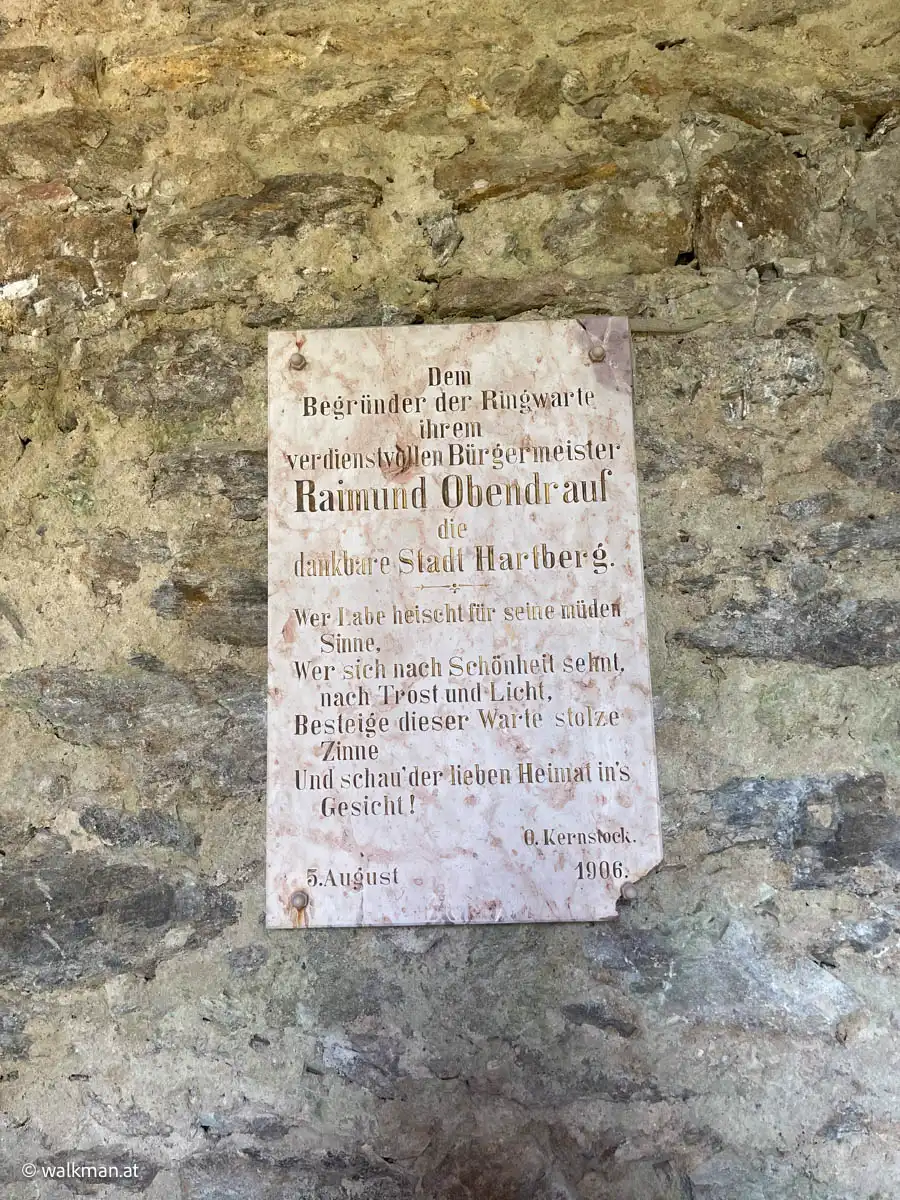 Dem
Begründer der Ringwarte
ihrem
verdienstvollen Bürgermeister
Raimund Obendrauf
die
dankbare Stadt Hartberg.
Wer Labe heischt für seine müden
Sinne,
Wer sich nach Schönheit sehnt,
nach Trost und Licht,
Besteige dieser Warte stolze
Zinne
Und schau'der lieben Heimat in's
Gesicht!
O. Kernstock.
5. August 1906.
© walkman.at